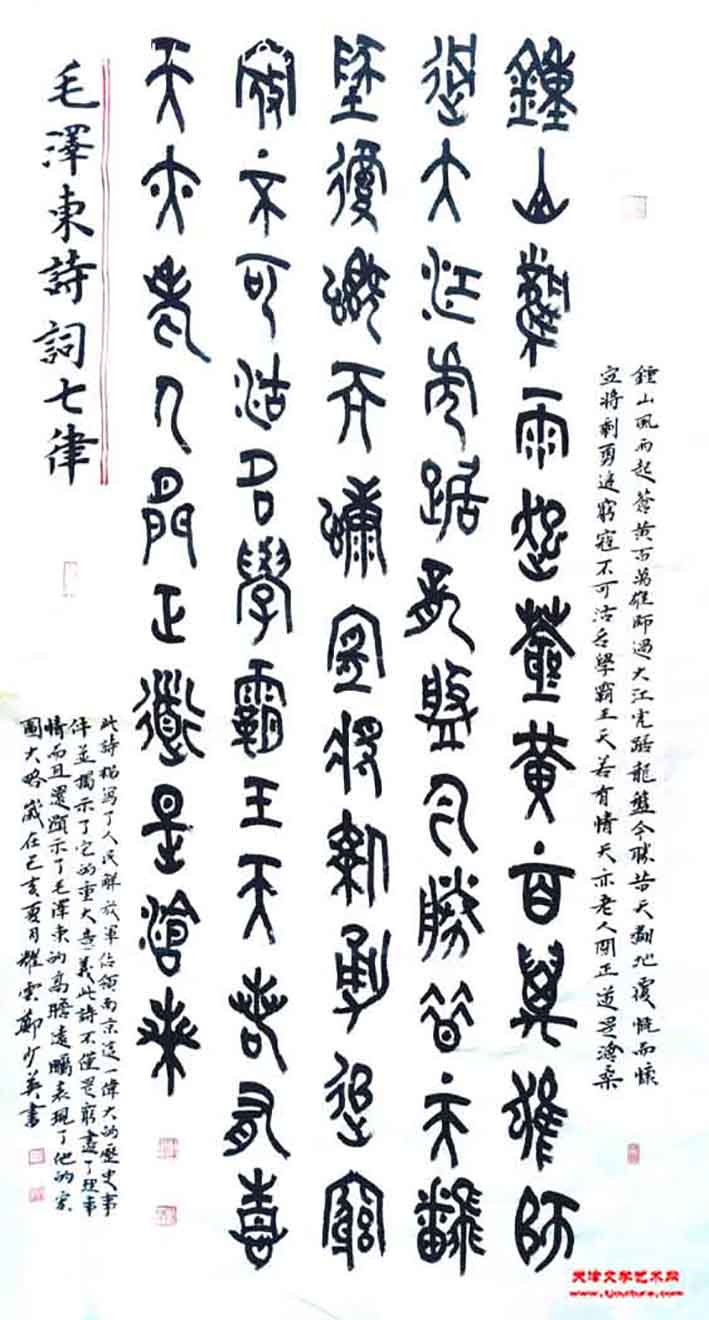 鍾山風雨起蒼黃百萬雄師過大江虎踞龍盤今勝昔天翻地覆慨而慷
宜將剩勇追窮寇不可沽名學霸王天若有情天亦老人間正道是滄桑
鍾山風雨起蒼黃百萬雄師
過大江虎踞龍盤今勝昔天翻
地覆慨而慷宜將剩勇追窮
寇不可沽名學霸王天若有情
天亦老人間正道是滄桑
毛澤東詩詞七律
此詩描寫了人民解放軍佔領南京這一偉大的歷史事
件並揭示了它的重大意義此詩不僅是窮盡了理事
情而且還顯示了毛澤東的高瞻遠矚表現了他的宏
圖大略歲在己亥酉月耀雲鄭少英書
天津文学艺术网
www.tjculture.com